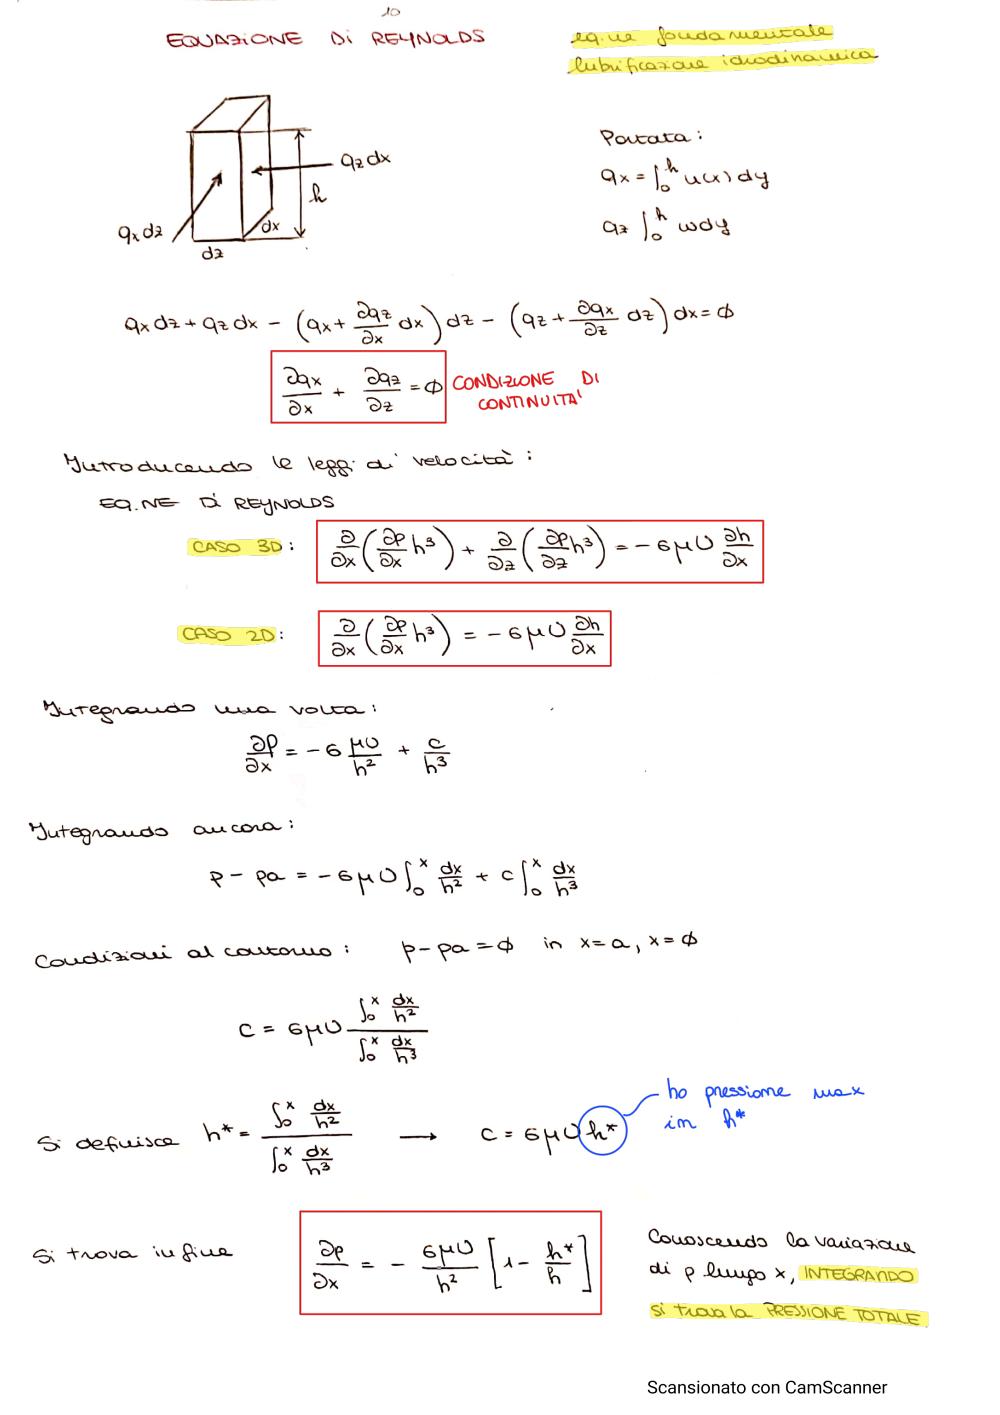 10
EQUAZIONE DI REYNOLDS
eq.ne fondamentale
lubrificazione idrodinamica
Portata:
qx = ∫₀ʰ u(x) dy
qz ∫₀ʰ w dy
qz dx
h
qx dz
dx
dz
qx dz + qz dx − (qx + ∂qz/∂x dx) dz − (qz + ∂qx/∂z dz) dx = ϕ
∂qx/∂x + ∂qz/∂z = ϕ CONDIZIONE DI
CONTINUITA'
Introducendo le leggi di velocità:
EQ.NE DI REYNOLDS
CASO 3D: ∂/∂x (∂p/∂x h³) + ∂/∂z (∂p/∂z h³) = −6μU ∂h/∂x
CASO 2D: ∂/∂x (∂p/∂x h³) = −6μU ∂h/∂x
Integrando una volta:
∂p/∂x = −6 μU/h² + c/h³
Integrando ancora:
p − pa = −6μU ∫₀ˣ dx/h² + c ∫₀ˣ dx/h³
Condizioni al contorno: p−pa = ϕ in x=a, x=ϕ
c = 6μU ∫₀ˣ dx/h² / ∫₀ˣ dx/h³
ho pressione max
in h*
Si definisce h* = ∫₀ˣ dx/h² / ∫₀ˣ dx/h³ → c = 6μU h*
Si trova infine ∂p/∂x = − 6μU/h² [1 − h*/h]
Conoscendo la variazione
di p lungo x, INTEGRANDO
si trova la PRESSIONE TOTALE
Scansionato con CamScanner